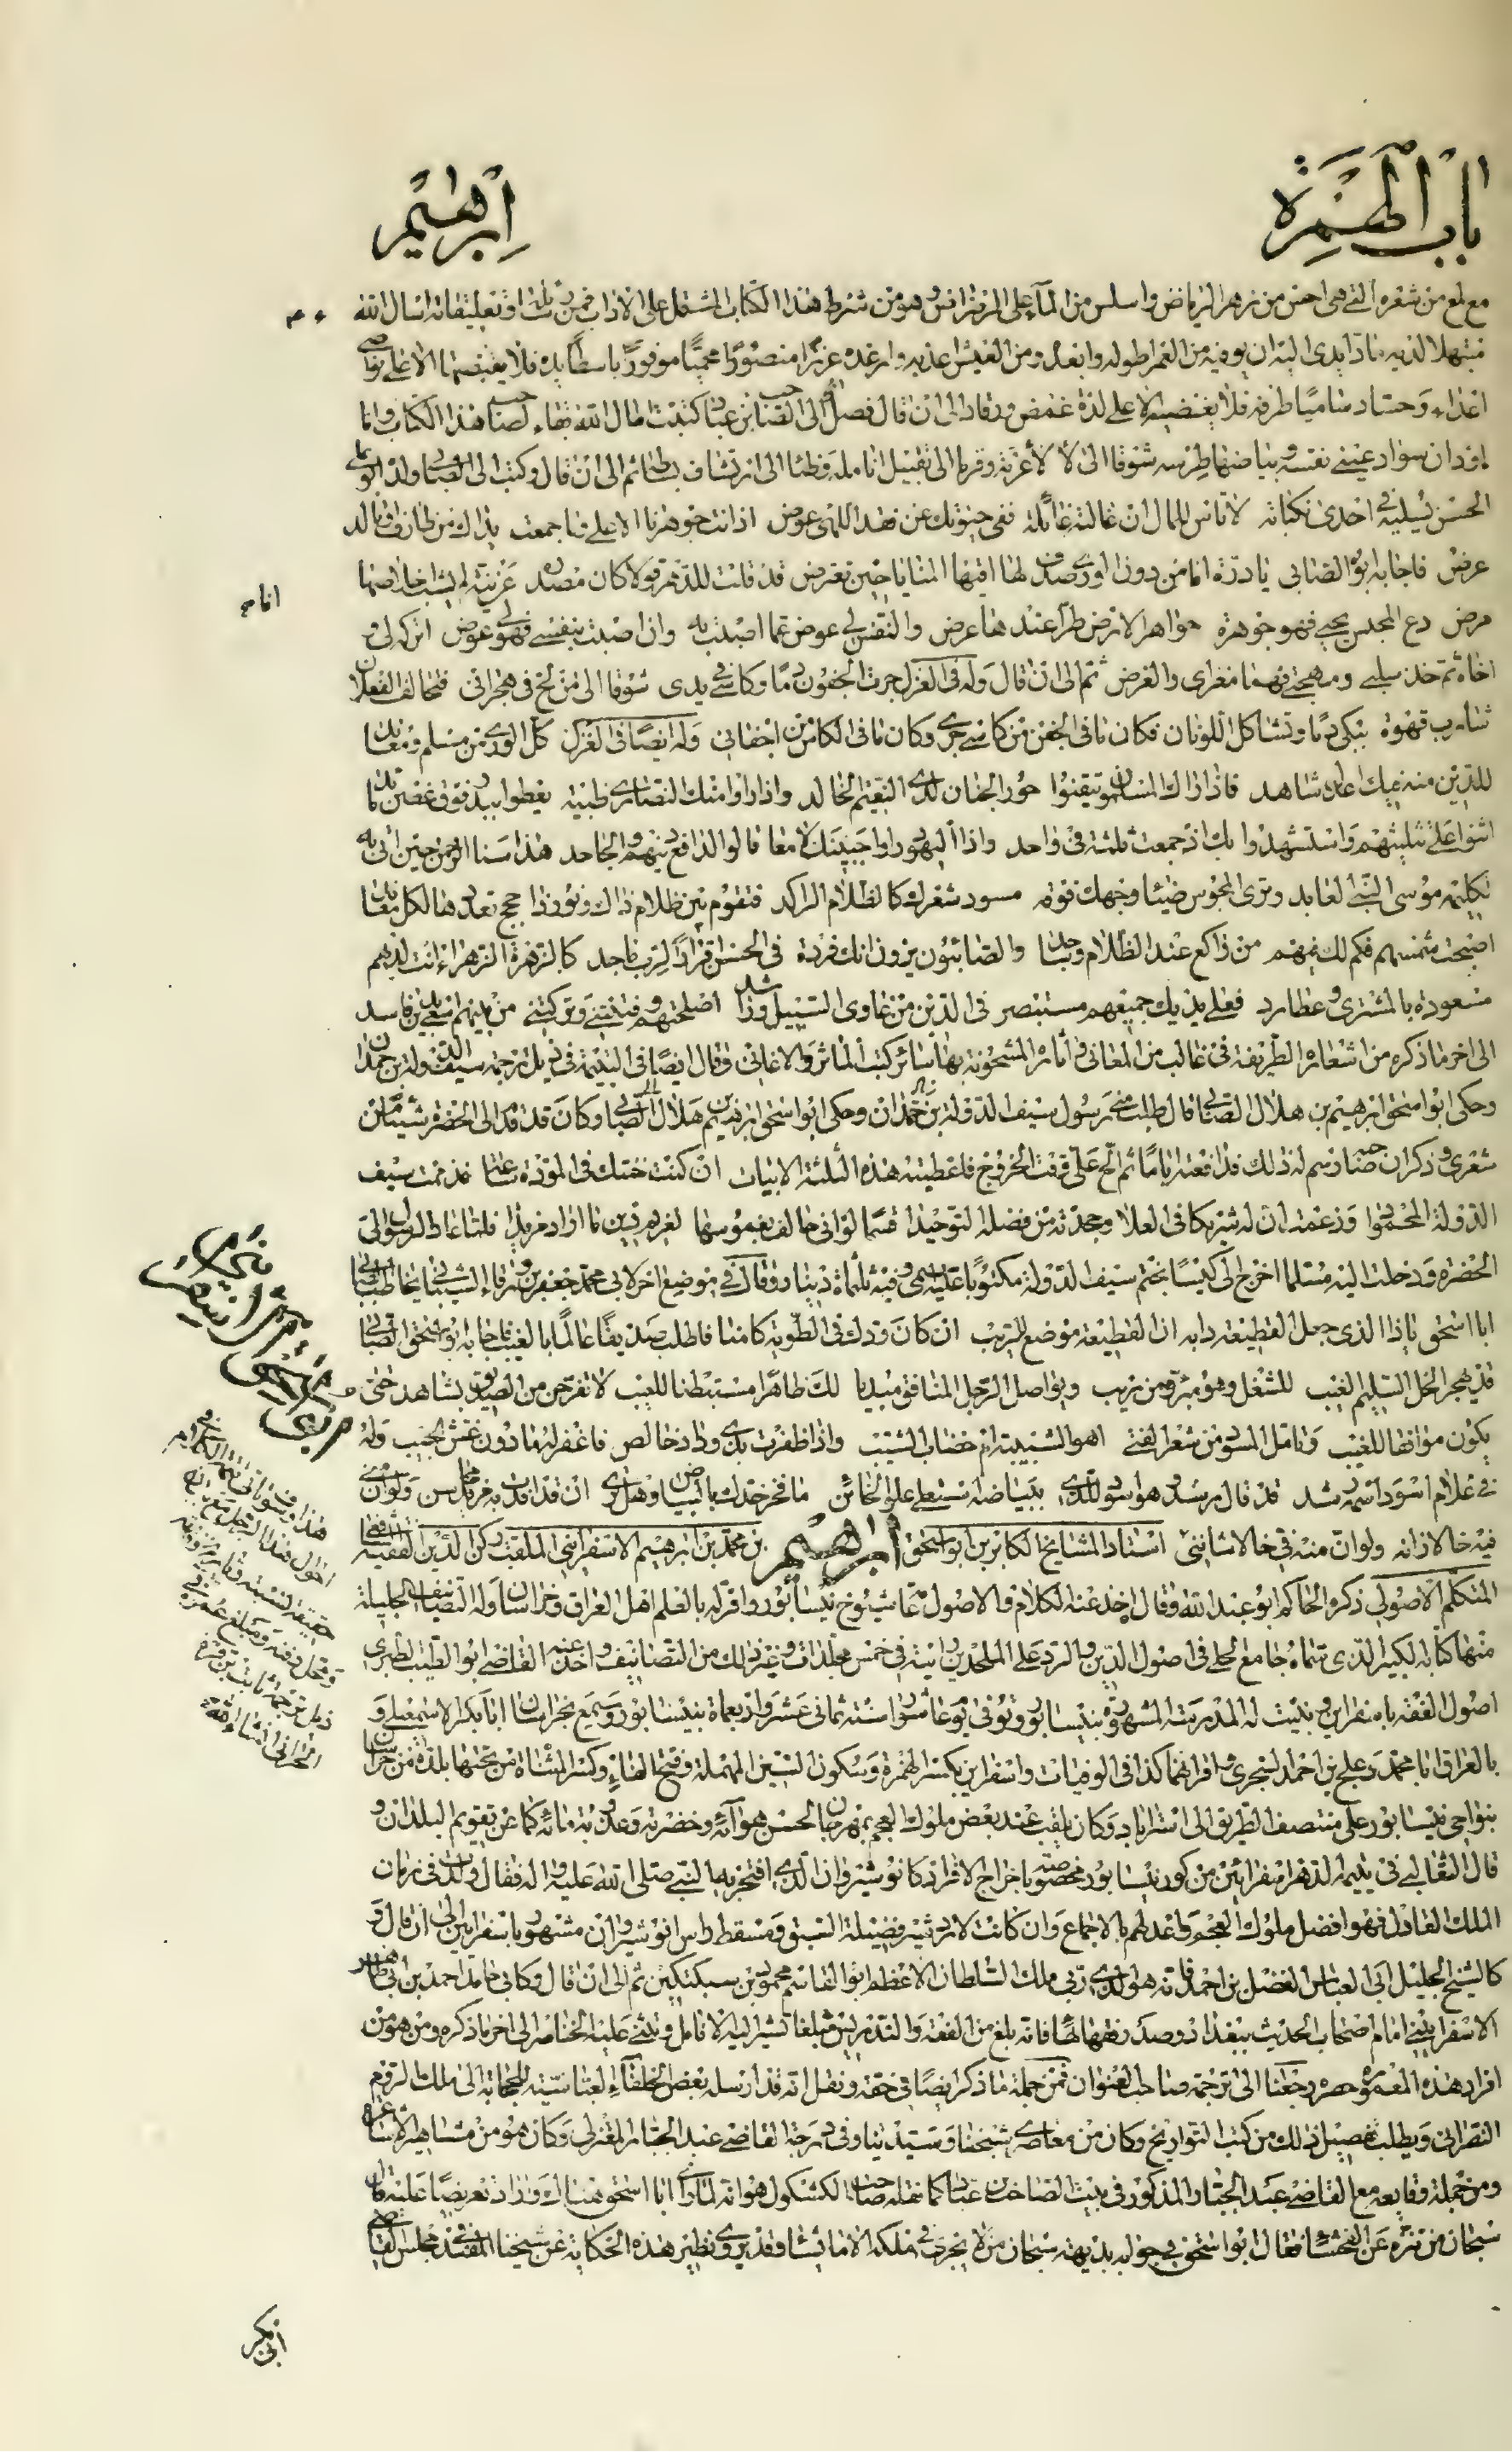 باب الهمزة
ابرهيم
مع لمع من شعره التي هي احسن من زهر الرياض واسلس من المآء على الرضراض وهو من شرط هذا الكتاب المشتمل على الاداب فمن ذلك ... اسال الله
مبتهلا لديه مادّا يدى اليه ان يوفيه من العمر اطوله وابعده ومن العيش اعذبه وارغده عزيزا منصورا محميّا موفورا باسطا يده فلا يقبضها الا على نواصى
اعداء وحساد ساميا طرفه فلا يغضيه الا على لذة غمض ورقاد الى ان قال فصل الى الصاحب ابن عباد كتبت اطال الله بقاء الصاحب هذا الكتاب وانا
اود ان سواد عينى نفسه وبياضها طرسه شوقا الى لألاء غرّته وقرما الى تقبيل انامله وظمئا الى ارتشاف بساطه ثم الى ان قال وكتب الى الصابى ولده ابو على
الحسن يسليه فى احدى نكباته لا تاس للمال ان غالته غائلة ففى حيوتك عن فقد اللهى عوض اذ انت جوهرنا الاعلى وما جمعت يداك من طارف او تالد
عرض فاجابه ابوه الصابى يا درّة انا من دون الورى صدف لها اقيها المنايا حين تعترض قد قلت للدهر قولا كان مصدره عن نية لم يشب اخلاصها
مرض دع المحسن يحيى فهو جوهرة جواهر الارض طرّا عندها عرض والنفس لى عوض عما اصبت به وان اصبت بنفسى فهو لى عوض اتركه لى و
اخاه ثم خذ سلبى ومهجتى فهما مغزاى والغرض ثم الى ان قال وله فى الغزل جرت الجفون دما وكاسى فى يدى شوقا الى من لج فى هجرانى فتخالف الفعلان
شارب قهوة يبكى دما وتشاكل اللونان فكان ما فى الجفن من كاسى جرى وكان ما فى الكاس من اجفانى وله ايضا فى الغزل كل الورى من مسلم ومعاهد
للدين منه فيك اعدل شاهد فاذا راك المسلمون تيقنوا حور الجنان لدى النعيم الخالد واذا راى منك النصارى ظبية تعطو ببدر فوق غصن مائد
اثنوا على تثليثهم واستشهدوا بك اذ جمعت ثلثة فى واحد واذا اليهود راوا جبينك لامعا قالوا لدافع دينهم والجاحد هذا سنا الرحمن حين ابانه
لكليمه موسى النبى العابد وترى المجوس ضياء وجهك فوقه مسود شعرك كالظلام الراكد فتقوم بين ظلام ذاك ونور ذا حجج تعدها لكل معاند
اصبحت شمسهم فكم لك فيهم من راكع عند الظلام وساجد والصابئون يرون انك فردة فى الحسن اقرارا لرب ماجد كالزهرة الزهراء انت لديهم
مسعودة بالمشترى وعطارد فعلى يديك جميعهم مستبصر فى الدين من غاوى السبيل وراشد اصلحتهم وفتنتنى وتركتنى من بينهم اسعى بدين فاسد
الى اخر ما ذكره من اشعاره الظريفة فى غالب من المعانى ... المشحونة بها سائر كتب الماثر والاغانى وقال ايضا فى اليتيمة فى ذيل ترجمة سيف الدولة بن حمدان
وحكى ابو اسحق ابرهيم بن هلال الصابى قال طلب منى رسول سيف الدولة بن حمدان ... وكان قد قدم الى الحضرة شيئا من
شعرى وذكر ان صاحبه رسم له ذلك فدافعته اياما ثم الحّ علىّ وقت الخروج فاعطيته هذه الثلثة الابيات ان كنت خنتك فى المودة ساعة فذممت سيف
الدولة المحمودا وزعمت ان له شريكا فى العلا وجحدته من فضله التوحيدا قسما لو انى حالف بغموسها لغريم دين ما اراد مزيدا فلما عاد الرسول الى
الحضرة ودخلت اليه مسلما اخرج الى كيسا بختم سيف الدولة مكتوبا عليه اسمى وفيه ثلثماة دينار وقال فى موضع اخر لابى محمد جعفر بن ورقاء الشيبانى يخاطب الصابى
ابا اسحق ياذا الذى جعل القطيعة دابه ان القطيعة موضع للريب ان كان ودك فى الطوية كامنا فاطلب صديقا عالما بالغيب فاجابه ابو اسحق الصابى
قد يهجر الخل السليم الغيب للشغل وهو مبرّؤ من ريب ويواصل الرجل المنافق مبديا لك ظاهرا مستبطنا للعيب لا تفرحن من الصديق بشاهد حتى
يكون موافقا للغيب وتامل المسود من شعر الفتى اهو الشبيبة ام خضاب الشيب واذا ظفرت بذى وداد خالص فاغفر له ما دون غش الجيب وله
فى غلام اسود اسمه رشد قد قال رشد وهو اسود للذى ببياضه استعلى علو الخائن ما فخر خدك بالبياض وهل ترى ان قد افدت به مزيد محاسن ولو ان منى
فيه خالا زانه ولو ان منه فى خالا شاننى استاد المشايخ الكابرين ابو اسحق ابرهيم بن محمد بن ابرهيم الاسفراينى الملقب ركن الدين الفقيه الشافعى
المتكلم الاصولى ذكره الحاكم ابو عبد الله وقال اخذ عنه الكلام والاصول عامة شيوخ نيسابور واقر له بالعلم اهل العراق وخراسان وله التصانيف الجليلة
منها كتابه الكبير الذى سماه جامع الحلى فى اصول الدين والرد على الملحدين رايته فى خمس مجلدات وغير ذلك من التصانيف واخذ عنه القاضى ابو الطيب الطبرى
اصول الفقه باسفراين وبنيت له المدرسة المشهورة بنيسابور وتوفى يوم عاشورا سنة ثمانى عشر واربعماة بنيسابور وسمع بخراسان ابا بكر الاسمعيلى و
بالعراق ابا محمد دعلج بن احمد السجزى واقرانهما كذا فى الوفيات واسفراين بكسر الهمزة وسكون السين المهملة وفتح الفاء وكسر المثناة من تحتها بلدة من خراسان
بنواحى نيسابور على منتصف الطريق الى استراباد وكان يلقب عند بعض ملوك العجم بمهرجان لحسن هوآئه وخضرته وعذوبة مائه كما عن تقويم البلدان و
قال الثعالبى فى يتيمة الدهر اسفراين من كور نيسابور مخصوصة باخراج الافراد كانوشيروان الذى افتخر به النبى صلى الله عليه واله فقال ولدت فى زمان
الملك العادل فهو افضل ملوك العجم واعدلهم بالاجماع وان كانت لاردشير فضيلة السبق ومسقط راس انوشيروان مشهور باسفراين الى ان قال و
كالشيخ الجليل ابى العباس الفضل بن احمد فانه هو الذى ربى ملك السلطان الاعظم ابو القاسم محمود بن سبكتكين ثم الى ان قال وكابى حامد احمد بن ابى طاهر
الاسفراينى امام اصحاب الحديث ببغداد وصدر فقهائها فانه بلغ من الفقه والتدريس مبلغا تشير اليه الانامل وتثنى عليه الخناصر الى اخر ما ذكره ومن هو من
افراد هذه المعمورة ... رجعنا الى ترجمة صاحب العنوان فمن جملة ما ذكر ايضا فى حقه ونقل انه قد ارسله بعض الخلفاء العباسية للحجابة الى ملك الروم
النصرانى ويطلب تفصيل ذلك من كتب التواريخ وكان من معاصرى شيخنا وسيدينا وفى درجة القاضى عبد الجبار المعتزلى وكان هو من مشاهير الاشاعرة
ومن جملة وقايعه مع القاضى عبد الجبار المذكور فى بيت الصاحب بن عباد كما نقله صاحب الكشكول هو انه لما راى ابا اسحق هناك واراد تعريضا عليه قال
سبحان من تنزه عن الفحشاء فقال ابو اسحق فى جوابه بديهة سبحان من لا يجرى فى ملكه الا ما يشاء وقد يروى نظير هذه الحكاية عن شيخنا المفيد فى مجلس القاضى
انامه
هذا وسياتى تتمة الكلام فى
احوال هذا الرجل مع بيان
حقيقة لنسبته وتاريخ وفاته
ومحل دفنه ومبلغ عمره فى
ذيل ترجمة ثابت بن قرة
الحرانى انشاء الله
ابى بكر